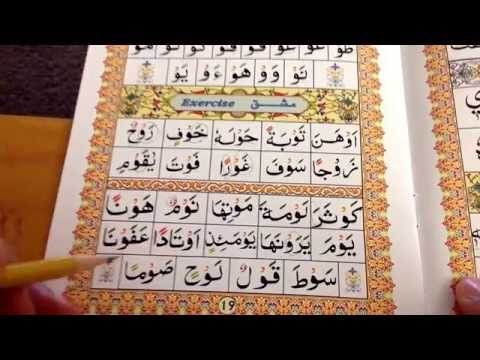 نَوْ وَوْ هَوْ ءَوْ يَوْ
Exercise مشق
اَوْهَنَ تَوْبَةً حَوْلَهٗ خَوْفٍ رَوْحُ
زَوْجًا سَوْفَ غَوْرًا فَوْتَ يَقَوْمِ
كَوْثَرَ لَوْمَةَ مَوْتِهَا نَوْمٌ هَوْنًا
يَوْمَ يَرَوْنَهَا يَوْمَئِذٍ اَوْتَادًا عَفَوْنَا
سَوْطَ قَوْلُ لَوْحٍ صَوْمًا
19